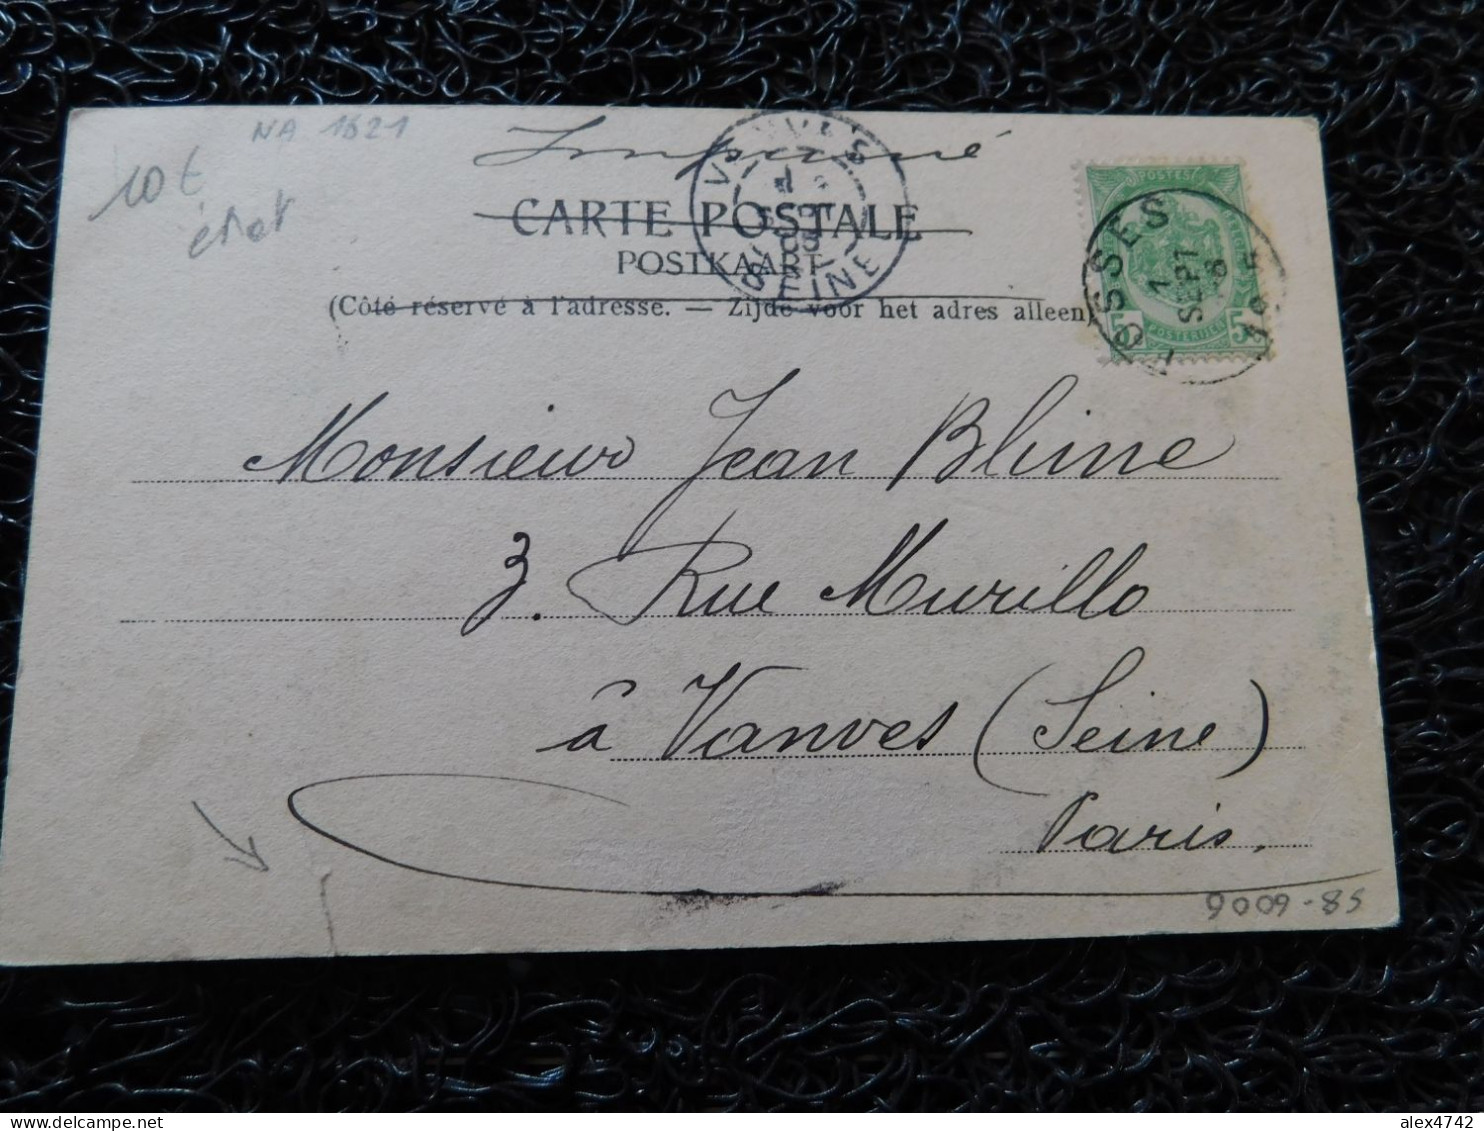 NA 1621
10 €
état
Imprimé
CARTE POSTALE
POSTKAART
(Côté réservé à l'adresse. — Zijde voor het adres alleen)
POSTES
POSTERIJEN
5
FOSSES
1
SEPT
8
1905
VANVES
SEPT
05
SEINE
Monsieur Jean Bhine
3. Rue Murillo
à Vanves (Seine)
Paris.
9009-85
alex4742